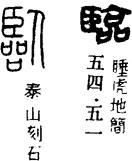 臨
睡虎地簡
五四·五一
臨
泰山刻石